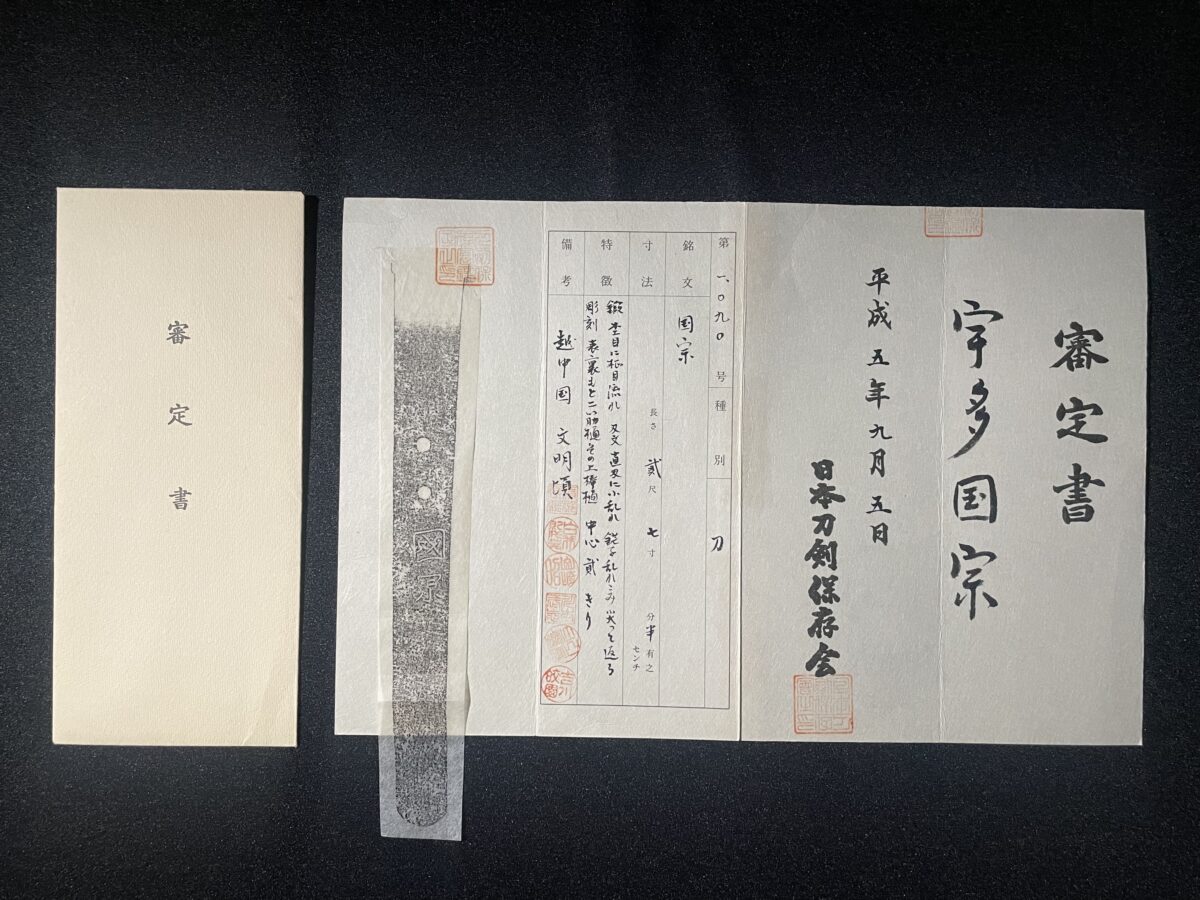 審定書
宇多国宗
平成五年九月五日
日本刀剣保存会
第一、〇九〇号 種別 刀
銘文 国宗
寸法 長さ 貳尺 七寸 分半有之 センチ
特徴 鍛 杢目に柾目流れ 刃文 直刃に小乱れ 鋩子乱れこみ 尖って返る
彫刻 表裏もと二筋樋その上棒樋 中心 貳 きり
備考 越中国 文明頃
國宗
審定書